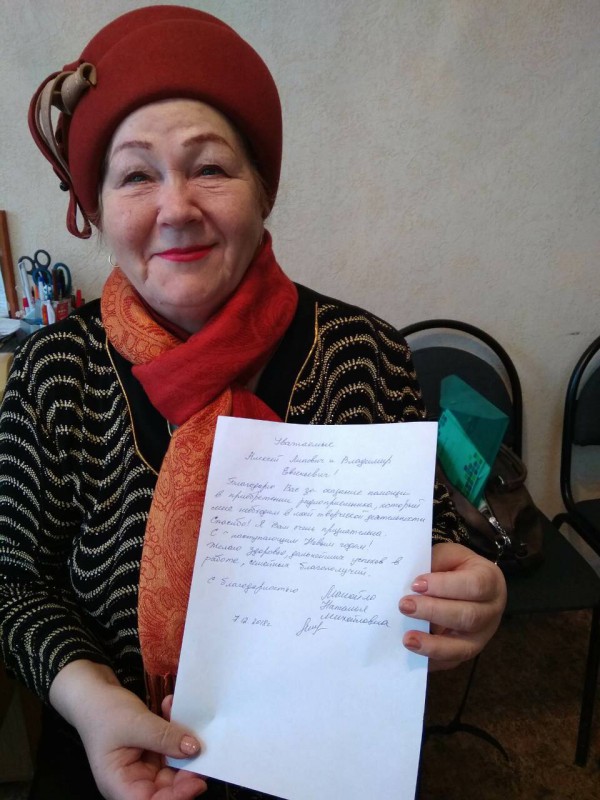 Уважаемые
Алексей Львович и Владимир
Евгеньевич!
Благодарю Вас за оказание помощи
в приобретении радиоприемника, который
мне необходим в моей творческой деятельности
Спасибо! Я Вам очень признательна.
С "наступающим Новым годом!
Желаю здоровья, дальнейших успехов в
работе, семейных благополучий.
С благодарностью
Наталья
Михайловна
7.12.2018г.